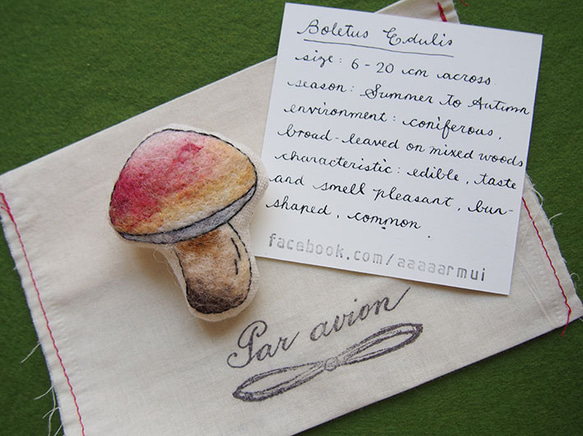 Boletus Edulis
size: 6-20 cm across
season: Summer to Autumn
environment: coniferous,
broad-leaved on mixed woods
characteristic: edible, taste
and smell pleasant, bun-
shaped, common.
facebook.com/aaaaarmui
Par avion